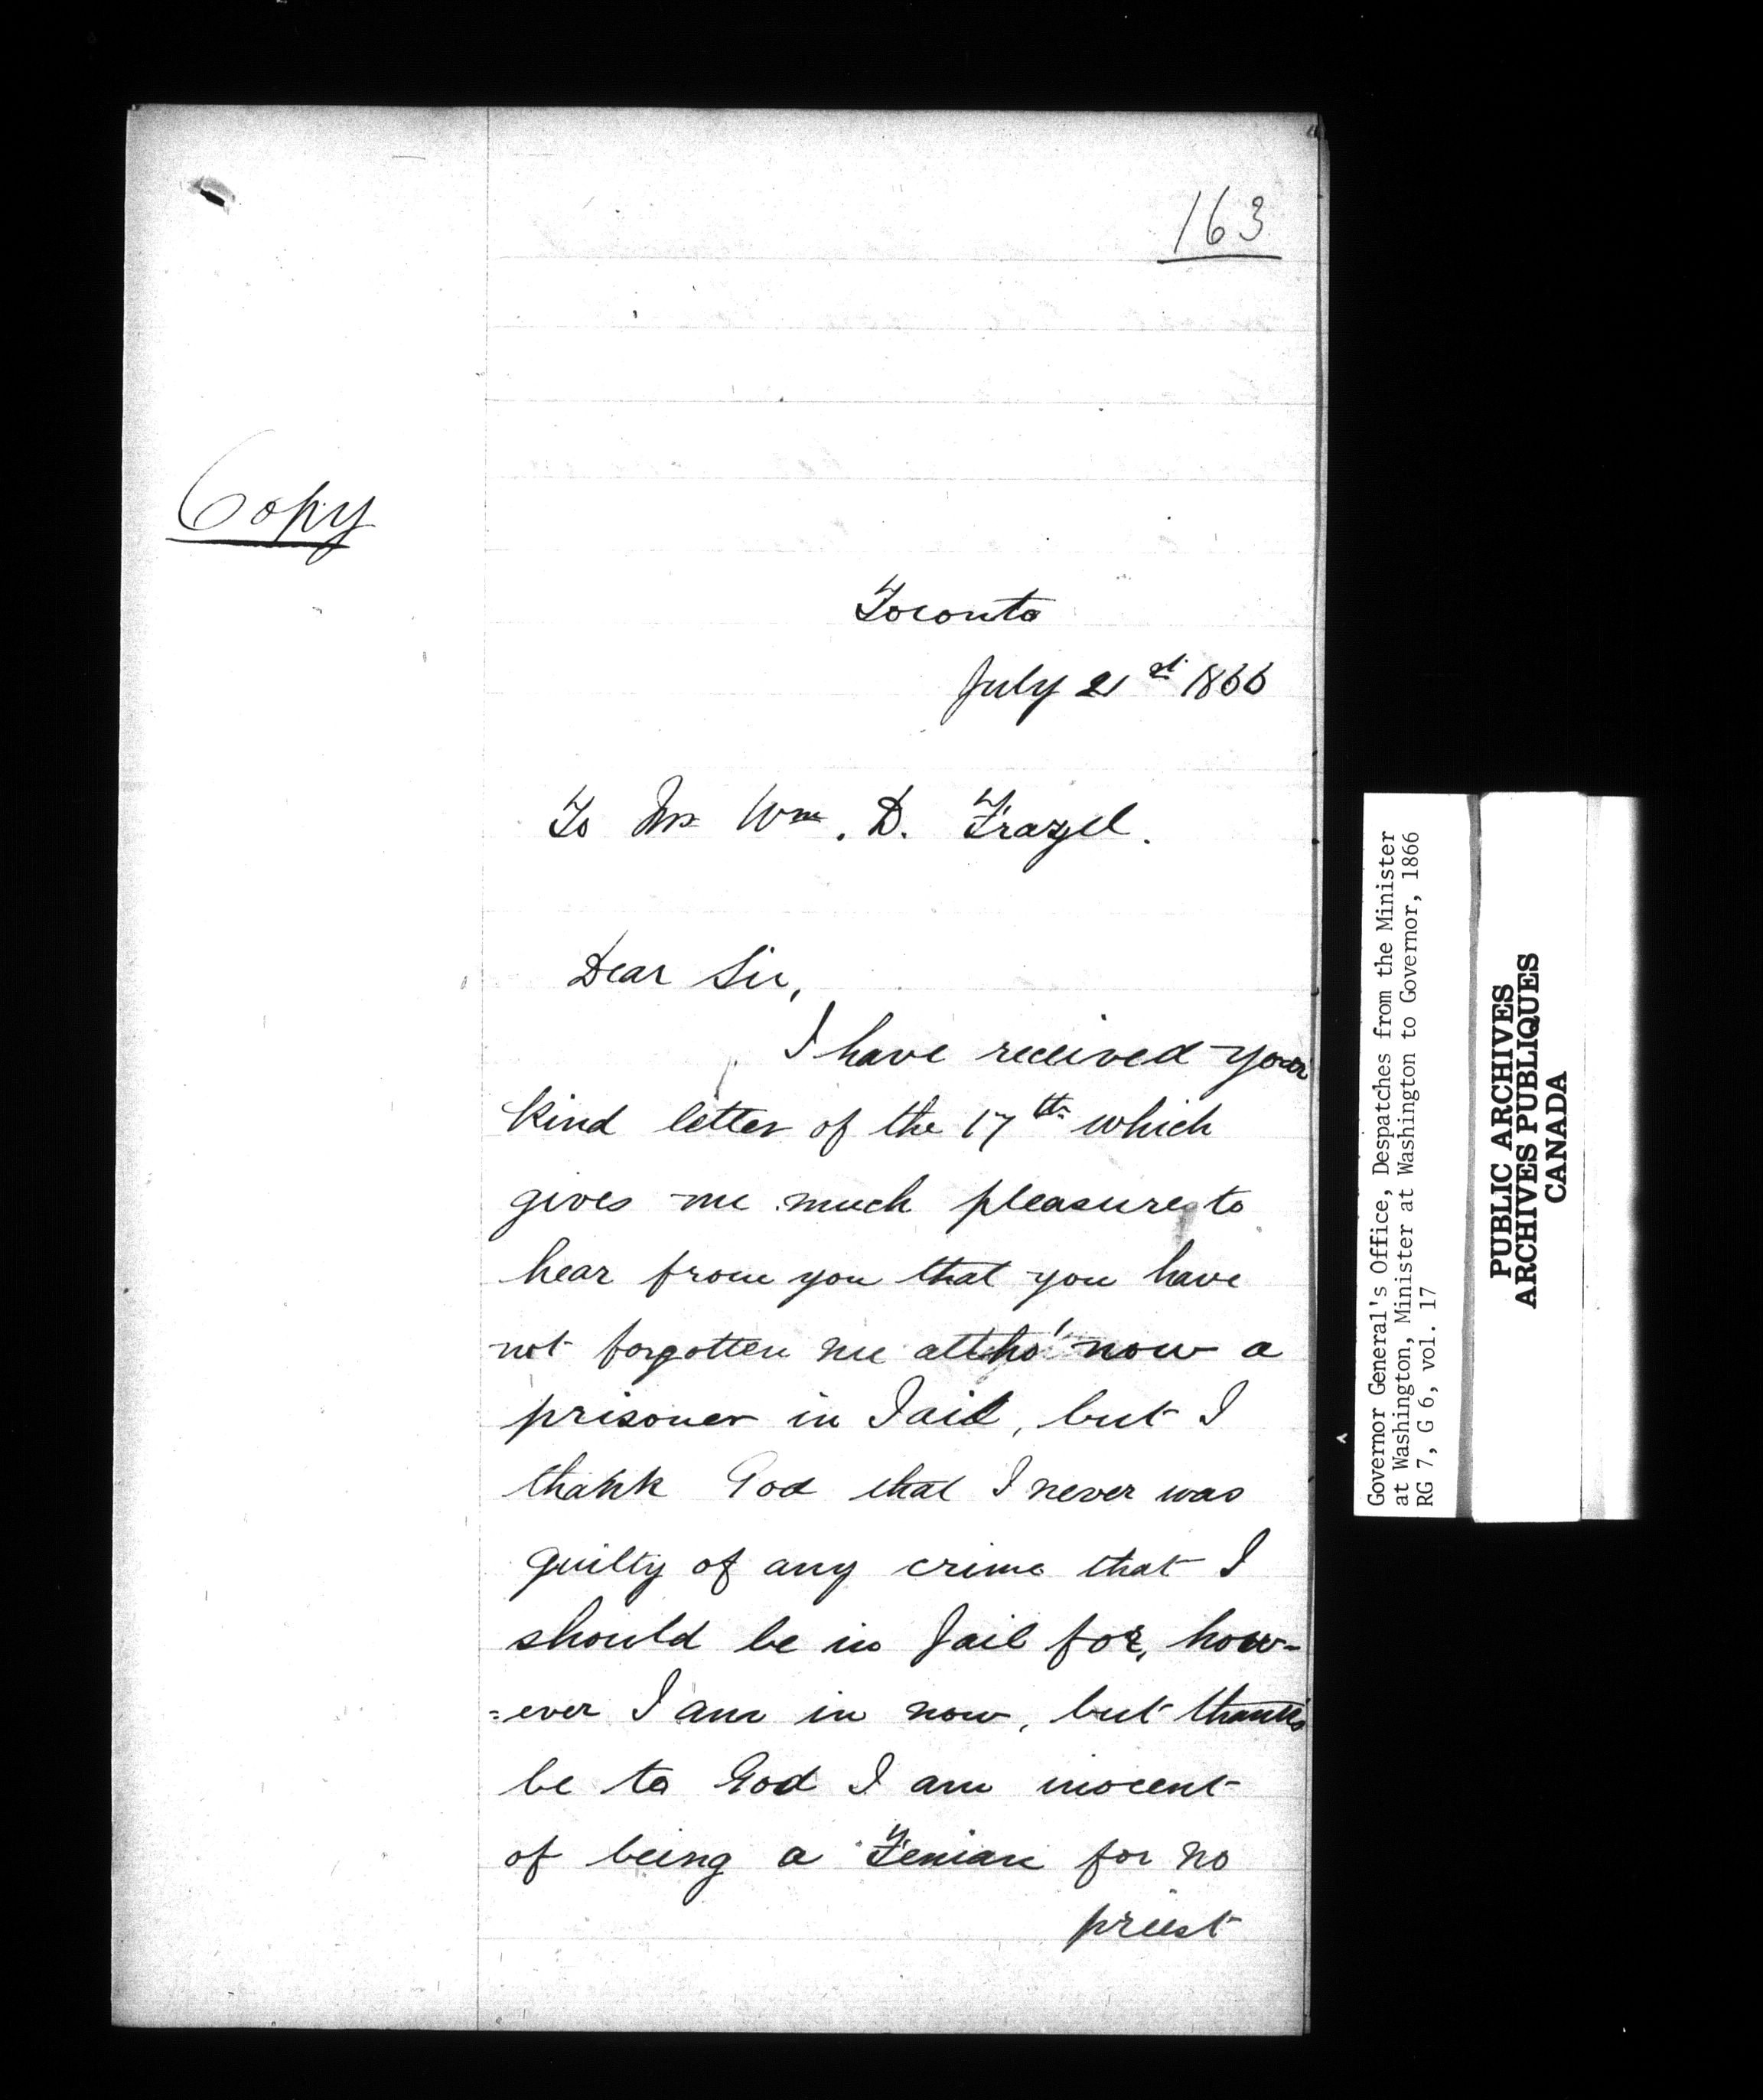 163
Copy
Toronto
July 21st 1866
To Mr Wm. D. Frazel.
Dear Sir,
I have received your
kind letter of the 17th which
gives me much pleasure to
hear from you that you have
not forgotten me altho' now a
prisoner in Jail, but I
thank God that I never was
guilty of any crime that I
should be in Jail for, how-
=ever I am in now, but thanks
be to God I am inocent
of being a Fenian for no
priest
Governor General's Office, Despatches from the Minister
at Washington, Minister at Washington to Governor, 1866
RG 7, G 6, vol. 17
PUBLIC ARCHIVES
ARCHIVES PUBLIQUES
CANADA